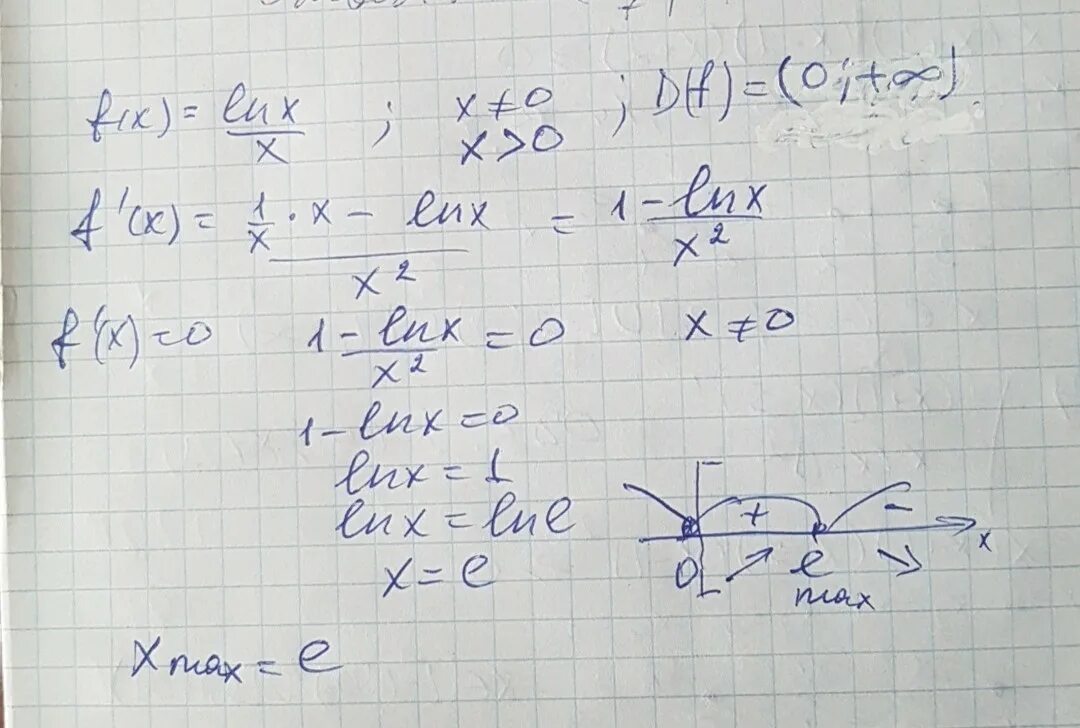 f(x) = lnx/x ; x ≠ 0 x > 0 ; D(f) = (0; +∞)
f'(x) = (1/x · x - lnx)/x² = (1 - lnx)/x²
f'(x) = 0 (1 - lnx)/x² = 0 x ≠ 0
1 - lnx = 0
lnx = 1
lnx = lne
x = e
+ -
0 e x
max
x max = e